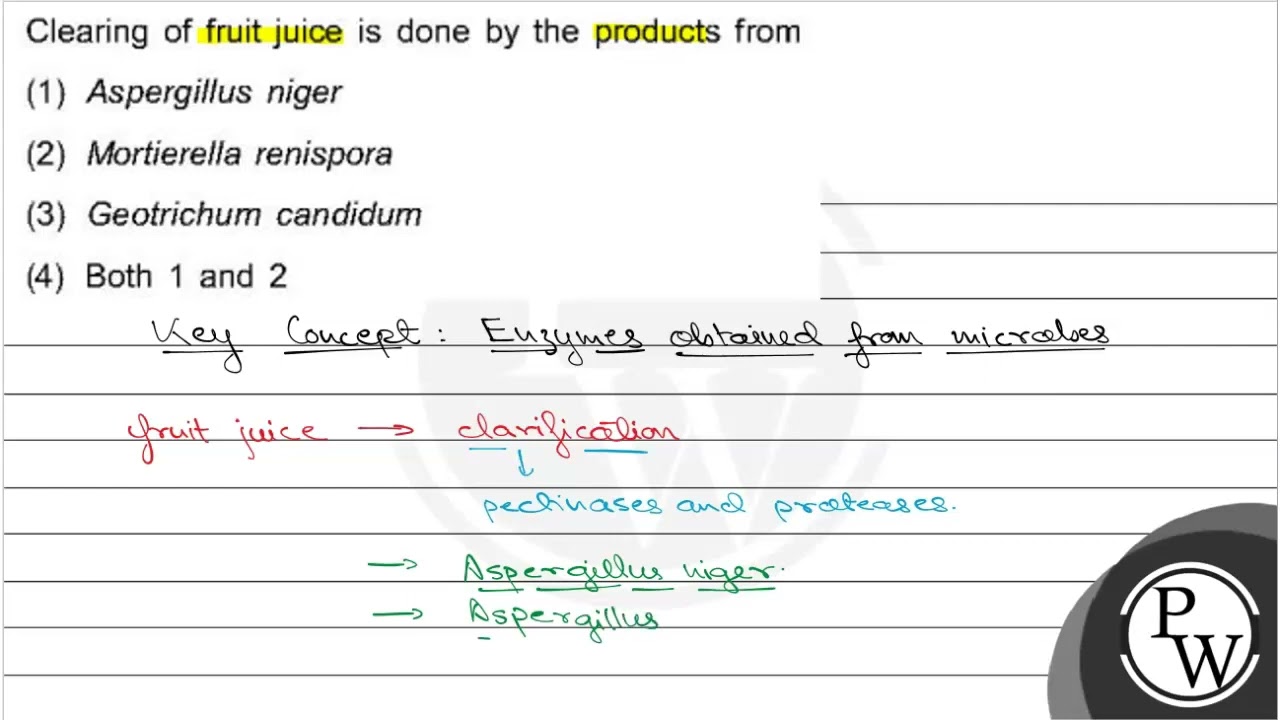 Clearing of fruit juice is done by the products from
(1) Aspergillus niger
(2) Mortierella renispora
(3) Geotrichum candidum
(4) Both 1 and 2
Key Concept : Enzymes obtained from microbes
fruit juice → clarification
↓
pectinases and proteases.
→ Aspergillus niger.
→ Aspergillus
P
W